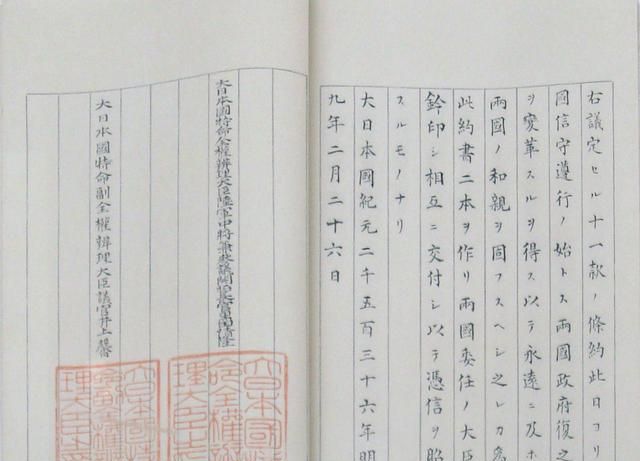 右議定セル十一款ノ條約此日ヨリ
國信守遵行ノ始トス兩國政府復之
ヲ變革スルヲ得ス以テ永遠ニ及ホ
兩國ノ和親ヲ固フスヘシ之レカ爲
此約書二本ヲ作リ兩國委任ノ大臣
鈐印シ相互ニ交付シ以テ憑信ヲ昭
スルモノナリ
大日本國紀元二千五百三十六年明
九年二月二十六日
大日本國特命全權辨理大臣陸軍中將兼參議開拓長官黑田淸隆
大日本國特命副全權辨理大臣議官井上馨
大日本國
命全權辨
理大臣之
大日本國特
命副全權辨
理大臣之